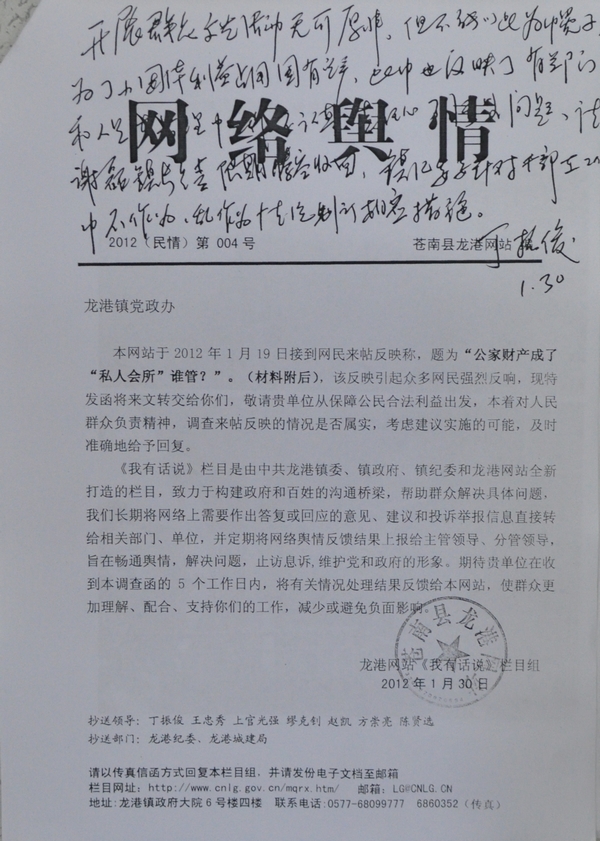 开展群众文艺活动无可厚非，但不能以此为
为了小团体利益占用国有资产，此中也反映了有部门
和人
问题，请
网络舆情
谢磊镇长
限期 收回，镇纪委 针对干部工作
中不作为、乱作为 情况制订相应措施。
2012（民情）第 004 号
苍南县龙港网站
丁振俊
1.30
龙港镇党政办
本网站于 2012 年 1 月 19 日接到网民来帖反映称，题为“公家财产成了
“私人会所”谁管？”。（材料附后），该反映引起众多网民强烈反响，现特
发函将来文转交给你们，敬请贵单位从保障公民合法利益出发，本着对人民
群众负责精神，调查来帖反映的情况是否属实，考虑建议实施的可能，及时
准确地给予回复。
《我有话说》栏目是由中共龙港镇委、镇政府、镇纪委和龙港网站全新
打造的栏目，致力于构建政府和百姓的沟通桥梁，帮助群众解决具体问题，
我们长期将网络上需要作出答复或回应的意见、建议和投诉举报信息直接转
给相关部门、单位，并定期将网络舆情反馈结果上报给主管领导、分管领导，
旨在畅通舆情，解决问题，止访息诉,维护党和政府的形象。期待贵单位在收
到本调查函的 5 个工作日内，将有关情况处理结果反馈给本网站，使群众更
加理解、配合、支持你们的工作，减少或避免负面影响。
苍南县龙港
龙港网站《我有话说》栏目组
2012 年 1 月 30 日
抄送领导：丁振俊 王忠秀 上官光强 缪克钊 赵凯 方崇亮 陈贤选
抄送部门：龙港纪委、龙港城建局
请以传真信函方式回复本栏目组，并请发份电子文档至邮箱
栏目网址：http://www.cnlg.gov.cn/mqrx.htm/ 邮箱：LG@CNLG.CN
地址:龙港镇政府大院 6 号楼四楼 联系电话:0577-68099777 6860352（传真）